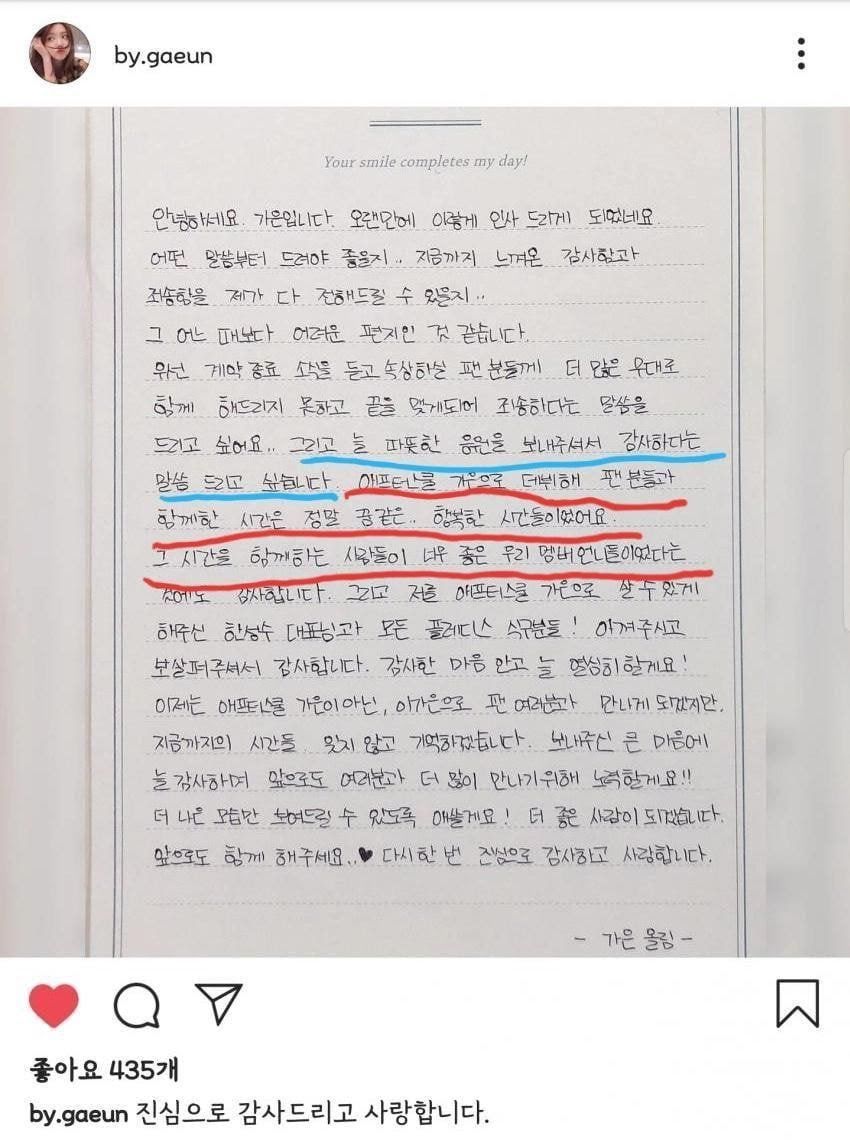 by.gaeun
Your smile completes my day!
안녕하세요. 가은입니다. 오랜만에 이렇게 인사 드리게 되었네요.
어떤 말씀부터 드려야 좋을지.. 지금까지 느껴온 감사함과
죄송함을 제가 다 전해드릴 수 있을지..
그 어느 때보다 어려운 편지인 것 같습니다.
우선 계약 종료 소식을 듣고 속상하실 팬 분들께 더 많은 무대로
함께 해드리지 못하고 끝을 맺게되어 죄송하다는 말씀을
드리고 싶어요.. 그리고 늘 따뜻한 응원을 보내주셔서 감사하다는
말씀 드리고 싶습니다. 애프터스쿨 가은으로 데뷔해 팬 분들과
함께한 시간은 정말 꿈같은.. 행복한 시간들이었어요.
그 시간을 함께하는 사람들이 너무 좋은 우리 멤버언니들이었다는
것에도 감사합니다. 그리고 저를 애프터스쿨 가은으로 살 수 있게
해주신 한성수 대표님과 모든 플레디스 식구분들! 아껴주시고
보살펴주셔서 감사합니다. 감사한 마음 안고 늘 열심히할게요!
이제는 애프터스쿨 가은이아닌, 이가은으로 팬 여러분과 만나게 되겠지만.
지금까지의 시간들 잊지 않고 기억하겠습니다. 보내주신 큰 마음에
늘 감사하며 앞으로도 여러분과 더 많이 만나기위해 노력할게요!!
더 나은 모습만 보여드릴 수 있도록 애쓸게요! 더 좋은 사람이 되겠습니다.
앞으로도 함께 해주세요..♥ 다시 한 번 진심으로 감사하고 사랑합니다.
- 가은 올림 -
좋아요 435개
by.gaeun 진심으로 감사드리고 사랑합니다.